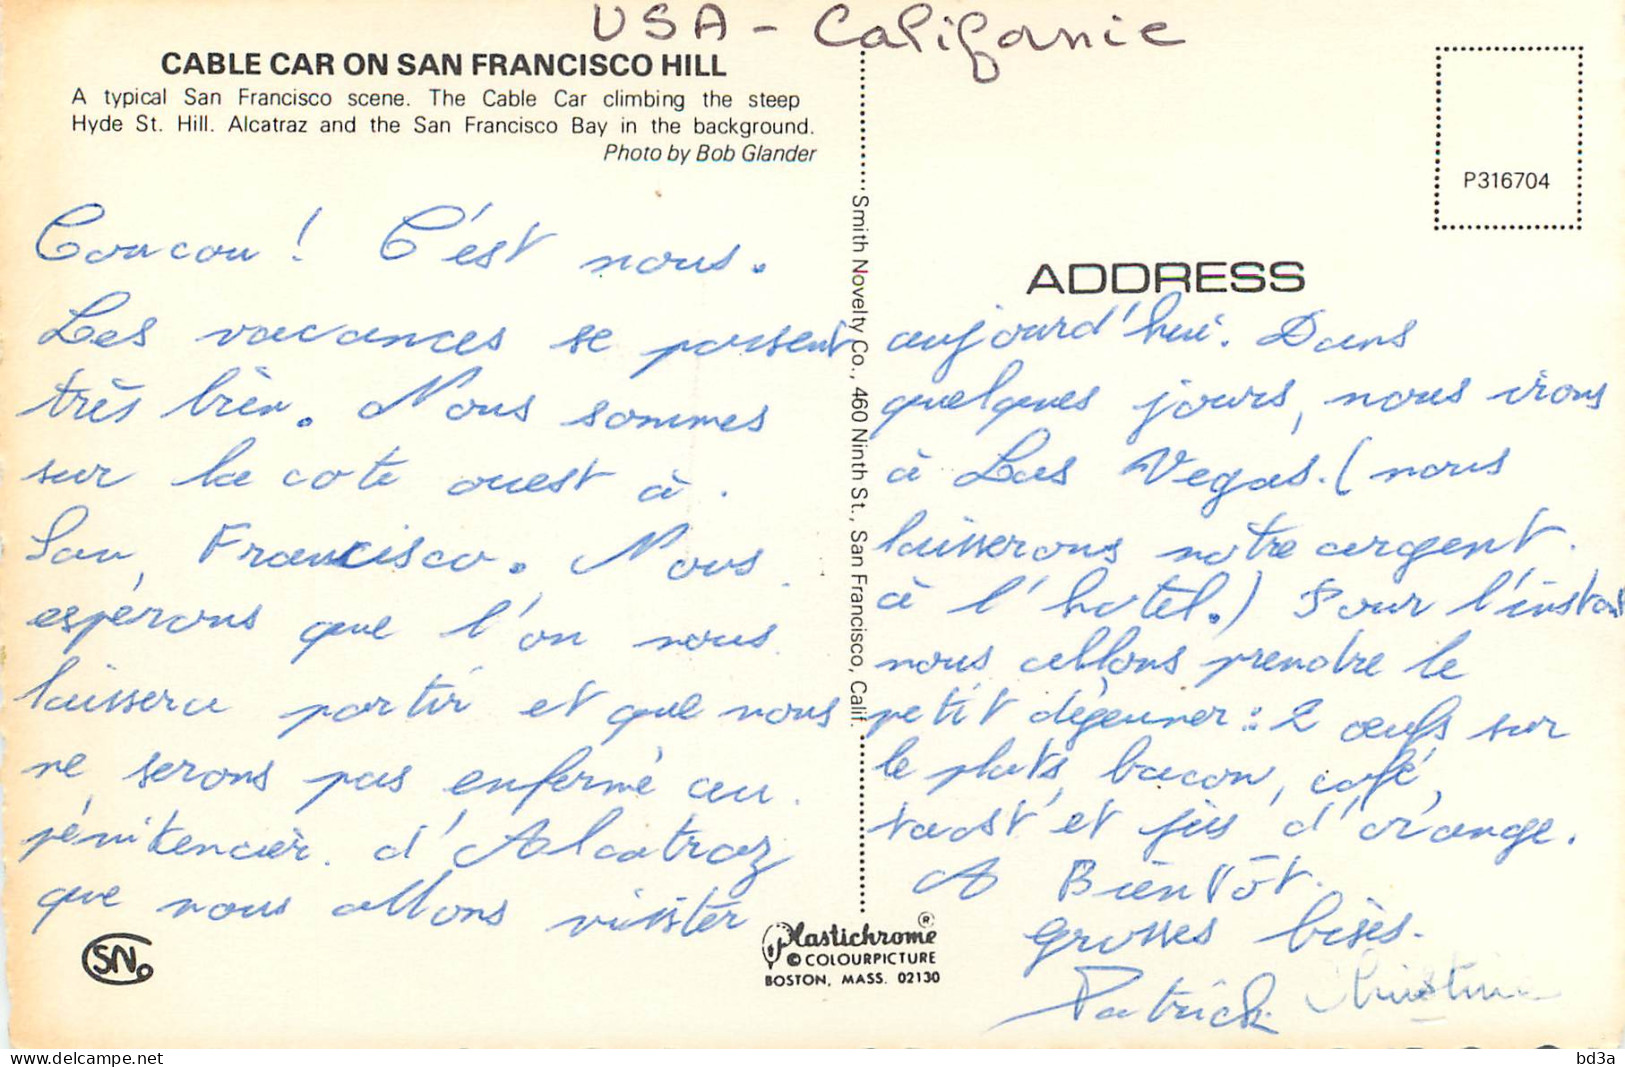 USA - Californie
CABLE CAR ON SAN FRANCISCO HILL
A typical San Francisco scene. The Cable Car climbing the steep
Hyde St. Hill. Alcatraz and the San Francisco Bay in the background.
Photo by Bob Glander
P316704
Smith Novelty Co., 460 Ninth St., San Francisco, Calif.
ADDRESS
Coucou ! C'est nous.
Les vacances se passent
très bien. Nous sommes
sur la cote ouest à
San Francisco. Nous
espérons que l'on nous
laissera partir et que nous
ne serons pas enfermé au
pénitencier d'Alcatraz
que nous allons visiter
aujourd'hui. Dans
quelques jours, nous irons
à Las Vegas. (nous
laisserons notre argent
à l'hotel.) Pour l'instant
nous allons prendre le
petit déjeuner : 2 œufs sur
le plats, bacon, café,
toast et jus d'orange.
A Bientôt.
grosses bises.
Patrick Christine
SN
Plastichrome ®
© COLOURPICTURE
BOSTON, MASS. 02130
bd3a